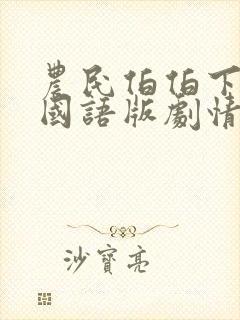 農民伯伯下
國語版劇情
沙寶亮